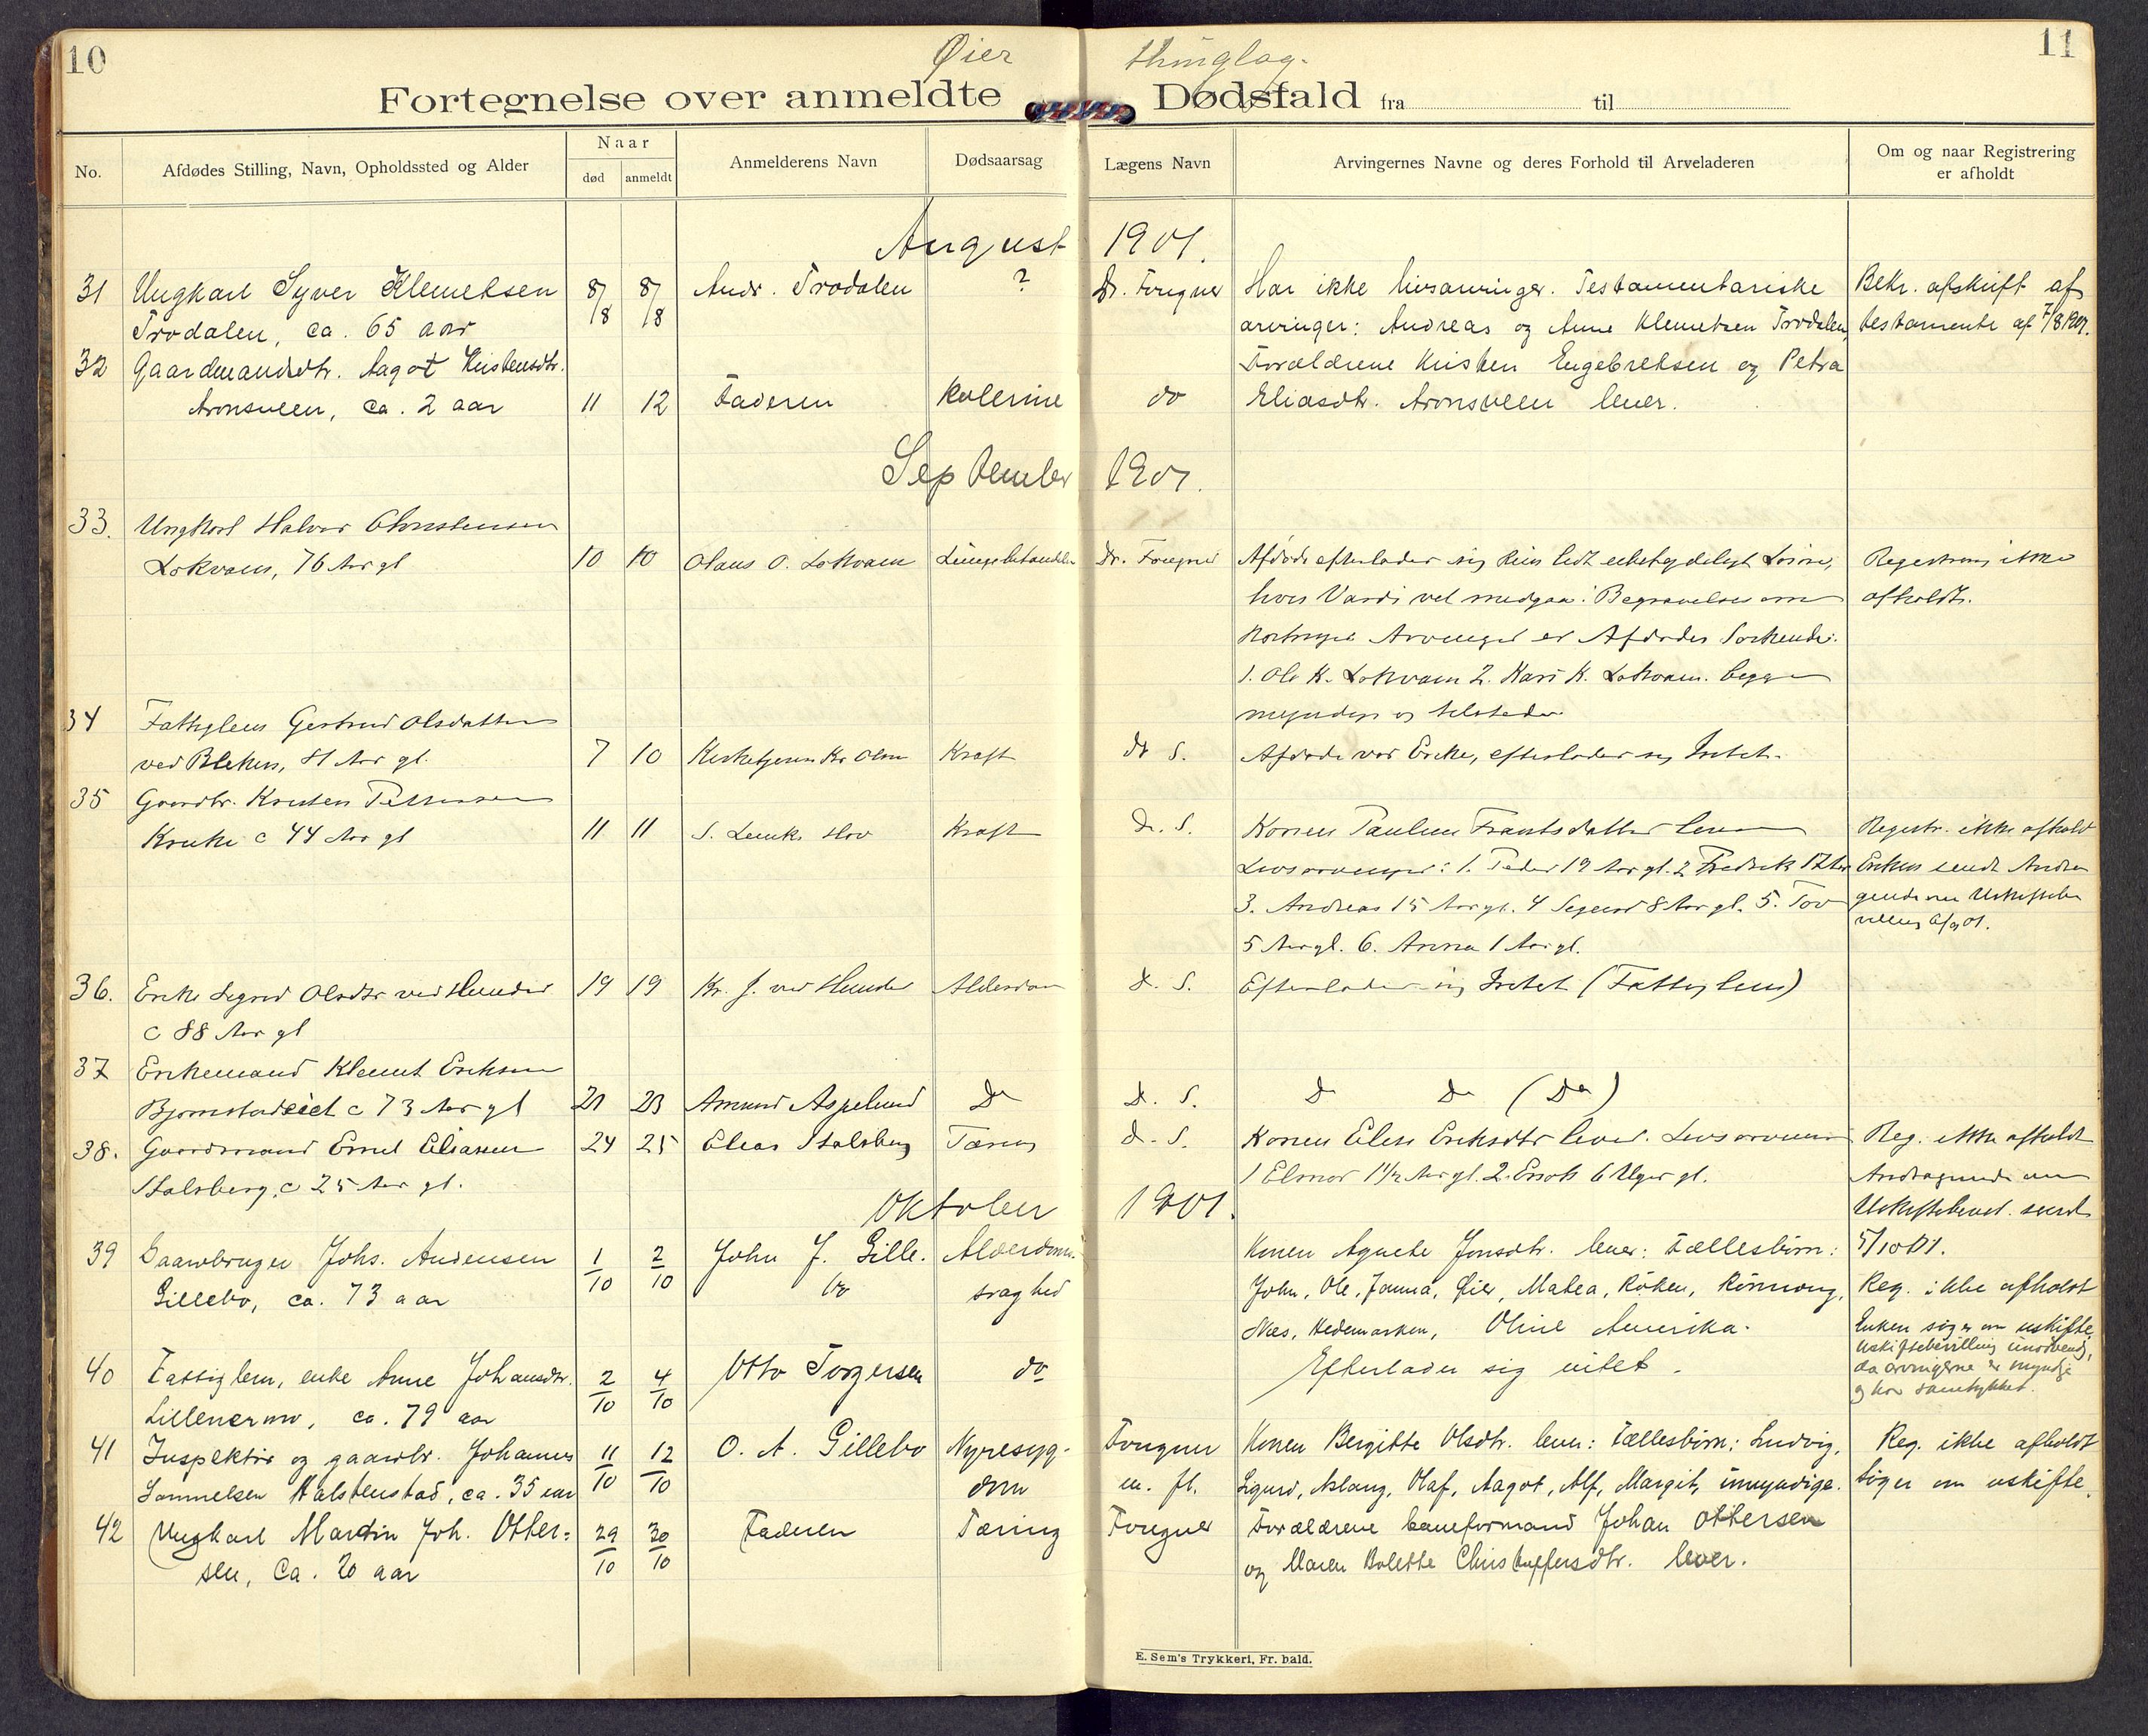 10
Øier
thinglag.
11
Fortegnelse over anmeldte
Dødsfald fra
til
No.
Afdødes Stilling, Navn, Opholdssted og Alder
Naar
død
anmeldt
Anmelderens Navn
Dødsaarsag
Lægens Navn
Arvingernes Navne og deres Forhold til Arveladeren
Om og naar Registrering
er afholdt
August 1901.
31 Ungkarl Syver Klemetsen 8/8 8/8 Andr. Trodalen ? Dr. Fougner Har ikke livsarvinger. Testamentariske Bekr. afskrift af
Trodalen, ca. 65 aar arvinger: Andreas og Anne Klemetsen Trodalen, testamente af 7/8 1901.
32 Gaardmandsdtr. Aagot Kristensdtr. Forældrene Kristen Engebretsen og Petra
Aronsveen, ca. 2 aar 11 12 Faderen Kolerine do Eliasdtr. Aronsveen lever.
September 1901.
33. Ungkarl Halvor Christensen
Lokvam, 76 Aar gl 10 10 Olaus O. Lokvam Dr. Fougner Afdøde efterlader sig kun lidt ubetydeligt Løsøre, Registrering ikke
hvis Værdi vil medgaa i Begravelsen afholdt.
Arvinger er Afdødes Søskende:
1. Ole K. Lokvam 2. Kari K. Lokvam. begge
myndige og tilstede
34 Fattiglem Gertrud Olsdatter
ved Bleken, 81 Aar gl. 7 10 Kr Olsen Kræft d S. Afdøde var Enke, efterlader sig Intet.
35 Gaardbr. Kristen Pettersen
Kruke c 44 Aar gl 11 11 S. Hov Kræft D. S. Konen Pauline Frantsdatter lever Registr. ikke afholdt
Livsarvinger: 1. Peder 19 Aar gl. 2 Fredrik 17 Aar Enken sendt
3. Andreas 15 Aar gl. 4 Sigurd 8 Aar gl. 5. Tov
5 Aar gl. 6. Anna 1 Aar gl.
36. Enke Sigrid Olsdtr ved Hunder 19 19 Kr. J. ved Hunder Alderdom d. S. Efterlader sig Intet (Fattiglem)
c 88 Aar gl
37 Enkemand Klemet Eriksen
c 73 Aar gl 21 23 Amund Aspelund Do d. S. Do Do (Do)
38. Gaardmand Emil Eliasen 24 25 Elias Stalsberg Tæring d. S. Konen Elen Eriksdtr lever. Livsarvinger Reg. ikke afholdt
Stalsberg, c 25 Aar gl. 1 Elmar 1½ Aar gl. 2. 6 Uger gl. Andragende om
Oktober 1901. Uskiftebevil. sendt
39 Gaardbruger Johs. Andersen 1/10 2/10 John J. Gille- Alderdoms- Konen Agnete Jonsdtr. lever: Fællesbørn: 5/10 01.
Gillebo, ca. 73 aar bo svaghed John, Ole, Janna, Øier, Matea, Røken, Rønnaug, Reg. ikke afholdt
Næs, Hedemarken, Oline Amerika. Enken søger om uskifte,
uskiftebevilling unødvendig,
40 Fattiglem, enke Anne Johansdtr. 2/10 4/10 Otto Torgersen do Efterlader sig intet. da arvingerne er myndige
Lillenermo, ca. 79 aar og har samtykket.
41 Inspektør og gaardbr. Johannes 11/10 12/10 O. A. Gillebo Nyresyg- Fougner Konen Bergitte Olsdtr. lever: Fællesbørn: Ludvig, Reg. ikke afholdt
Sammelsen Halstenstad, ca. 35 aar dom m. fl. Sigurd, Aslaug, Olaf, Aagot, Alf, Margit, umyndige. Søger om uskifte.
42 Ungkarl Martin Joh. Otter= 29/10 30/10 Faderen Tæring Fougner Forældrene baneformand Johan Ottersen
sen, Ca. 20 aar og Maren Bolette Christoffersdtr. lever.
E. Sem's Trykkeri, Fr.hald.